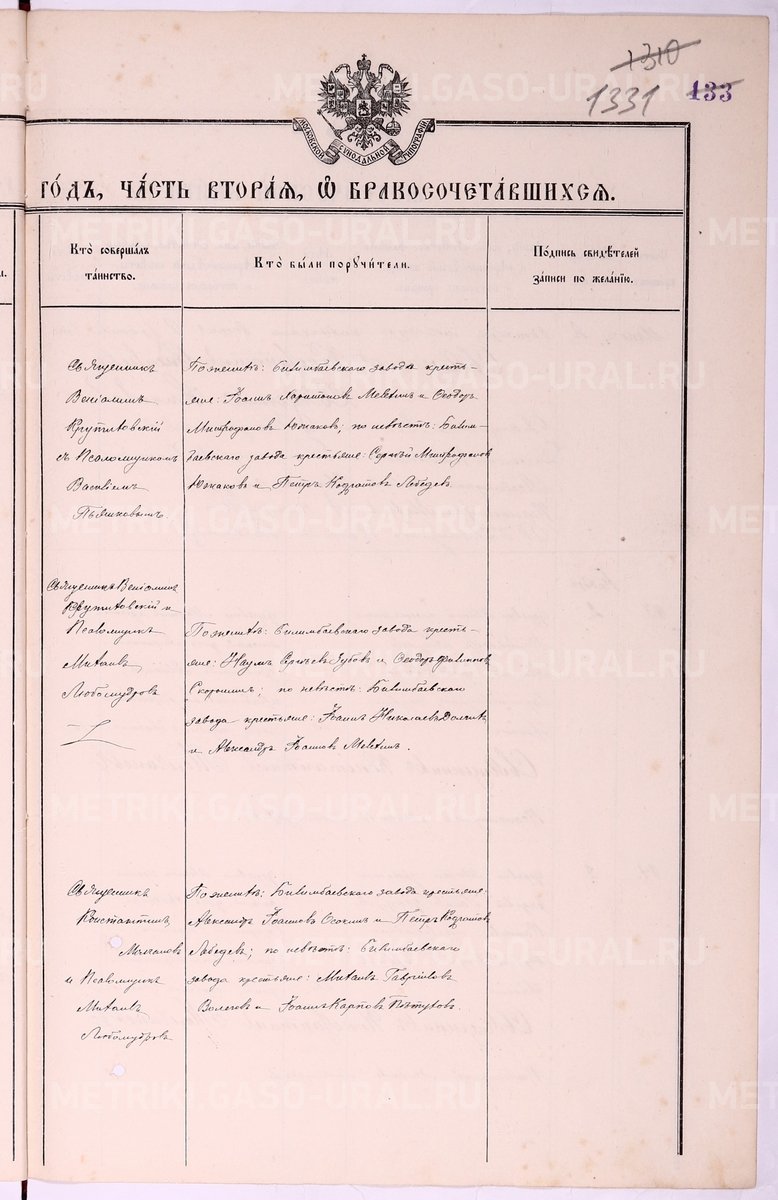 1310
1331 133
МОСКОВСКОЙ СѴНОДАЛЬНОЙ ТИПОГРАФІИ
ГО́ДЪ, ЧА́СТЬ ВТОРА́Я, Ѡ БРАКОСОЧЕТА́ВШИХСЯ.
Кто̀ соверша́лъ
та́инство.
Кто̀ бы́ли порꙋчи́тели.
По́дпись свидѣ́телей
за́писи по жела́нїю.
Священникъ
Веніаминъ
Крутиловскій
съ Псаломщикомъ
Василіемъ
Пьянковымъ
По женихѣ: Билимбаевскаго завода кресть-
яне: Іоаннъ Харитоновъ Мелехинъ и Ѳеодоръ
Митрофановъ Южаковъ; по невѣстѣ: Билим-
баевскаго завода крестьяне: Сергѣй Митрофановъ
Южаковъ и Петръ Кодратовъ Лебедевъ.
Священникъ Веніаминъ
Крутиловскій и
Псаломщикъ
Михаилъ
Любомудровъ
По женихѣ: Билимбаевскаго завода кресть-
яне: Наумъ Сергѣевъ Зубовъ и Ѳеодоръ Филиповъ
Скорынинъ; по невѣстѣ: Билимбаевскаго
завода крестьяне: Іоаннъ Николаевъ
и Александръ Іоанновъ Мелехинъ.
Священникъ
Константинъ
Молчановъ
и Псаломщикъ
Михаилъ
Любомудровъ
По женихѣ: Билимбаевскаго завода крестьяне:
Александръ Іоанновъ Осокинъ и Петръ Кодратовъ
Лебедевъ; по невѣстѣ: Билимбаевскаго
завода крестьяне: Михаилъ Гавріиловъ
Волеговъ и Іоаннъ Карповъ Пѣтуховъ.
METRIKI.GASO-URAL.RU